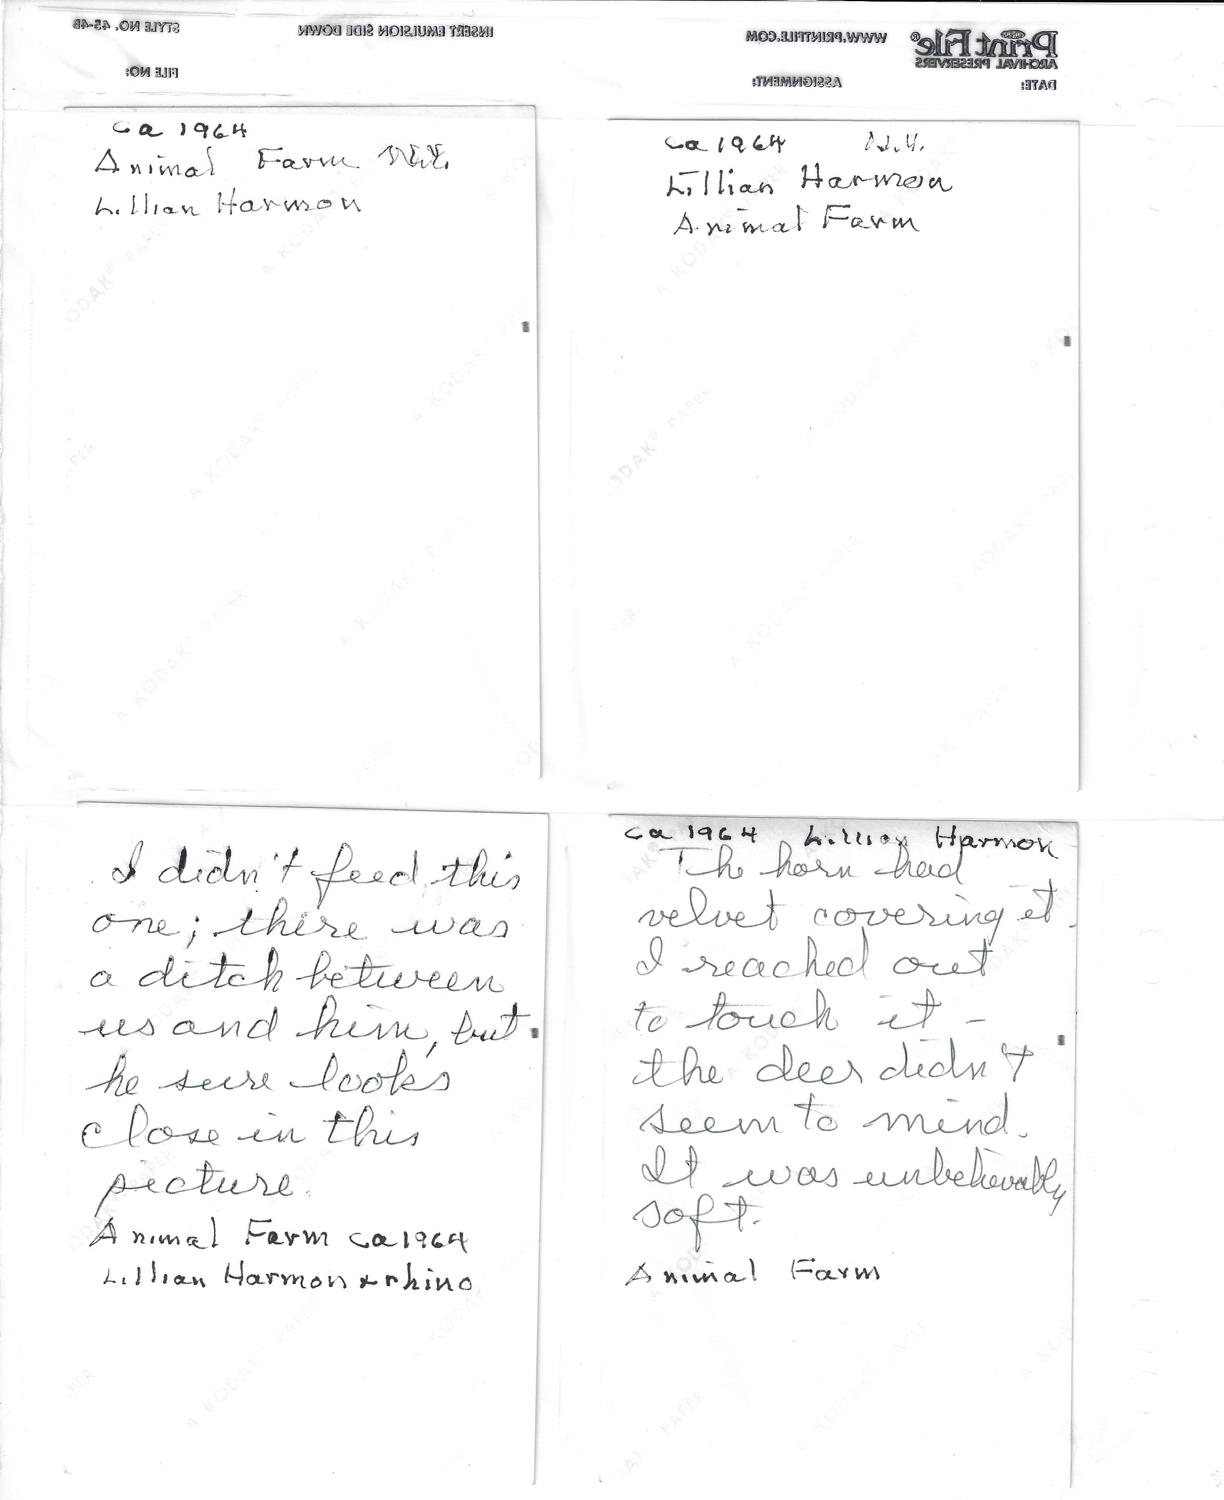 STYLE NO. 45-4B
INSERT EMULSION SIDE DOWN
WWW.PRINTFILE.COM
Print File®
ARCHIVAL PRESERVERS
FILE NO:
ASSIGNMENT:
DATE:
ca 1964
Animal Farm
Lillian Harmon
ca 1964 N.Y.
Lillian Harmon
Animal Farm
A KODAK® PAPER
I didn't feed this
one; there was
a ditch between
us and him, but
he sure looks
close in this
picture.
Animal Farm ca 1964
Lillian Harmon & rhino
ca 1964 Lillian Harmon
The horn had
velvet covering it.
I reached out
to touch it -
the deer didn't
seem to mind.
It was unbelievably
soft.
Animal Farm